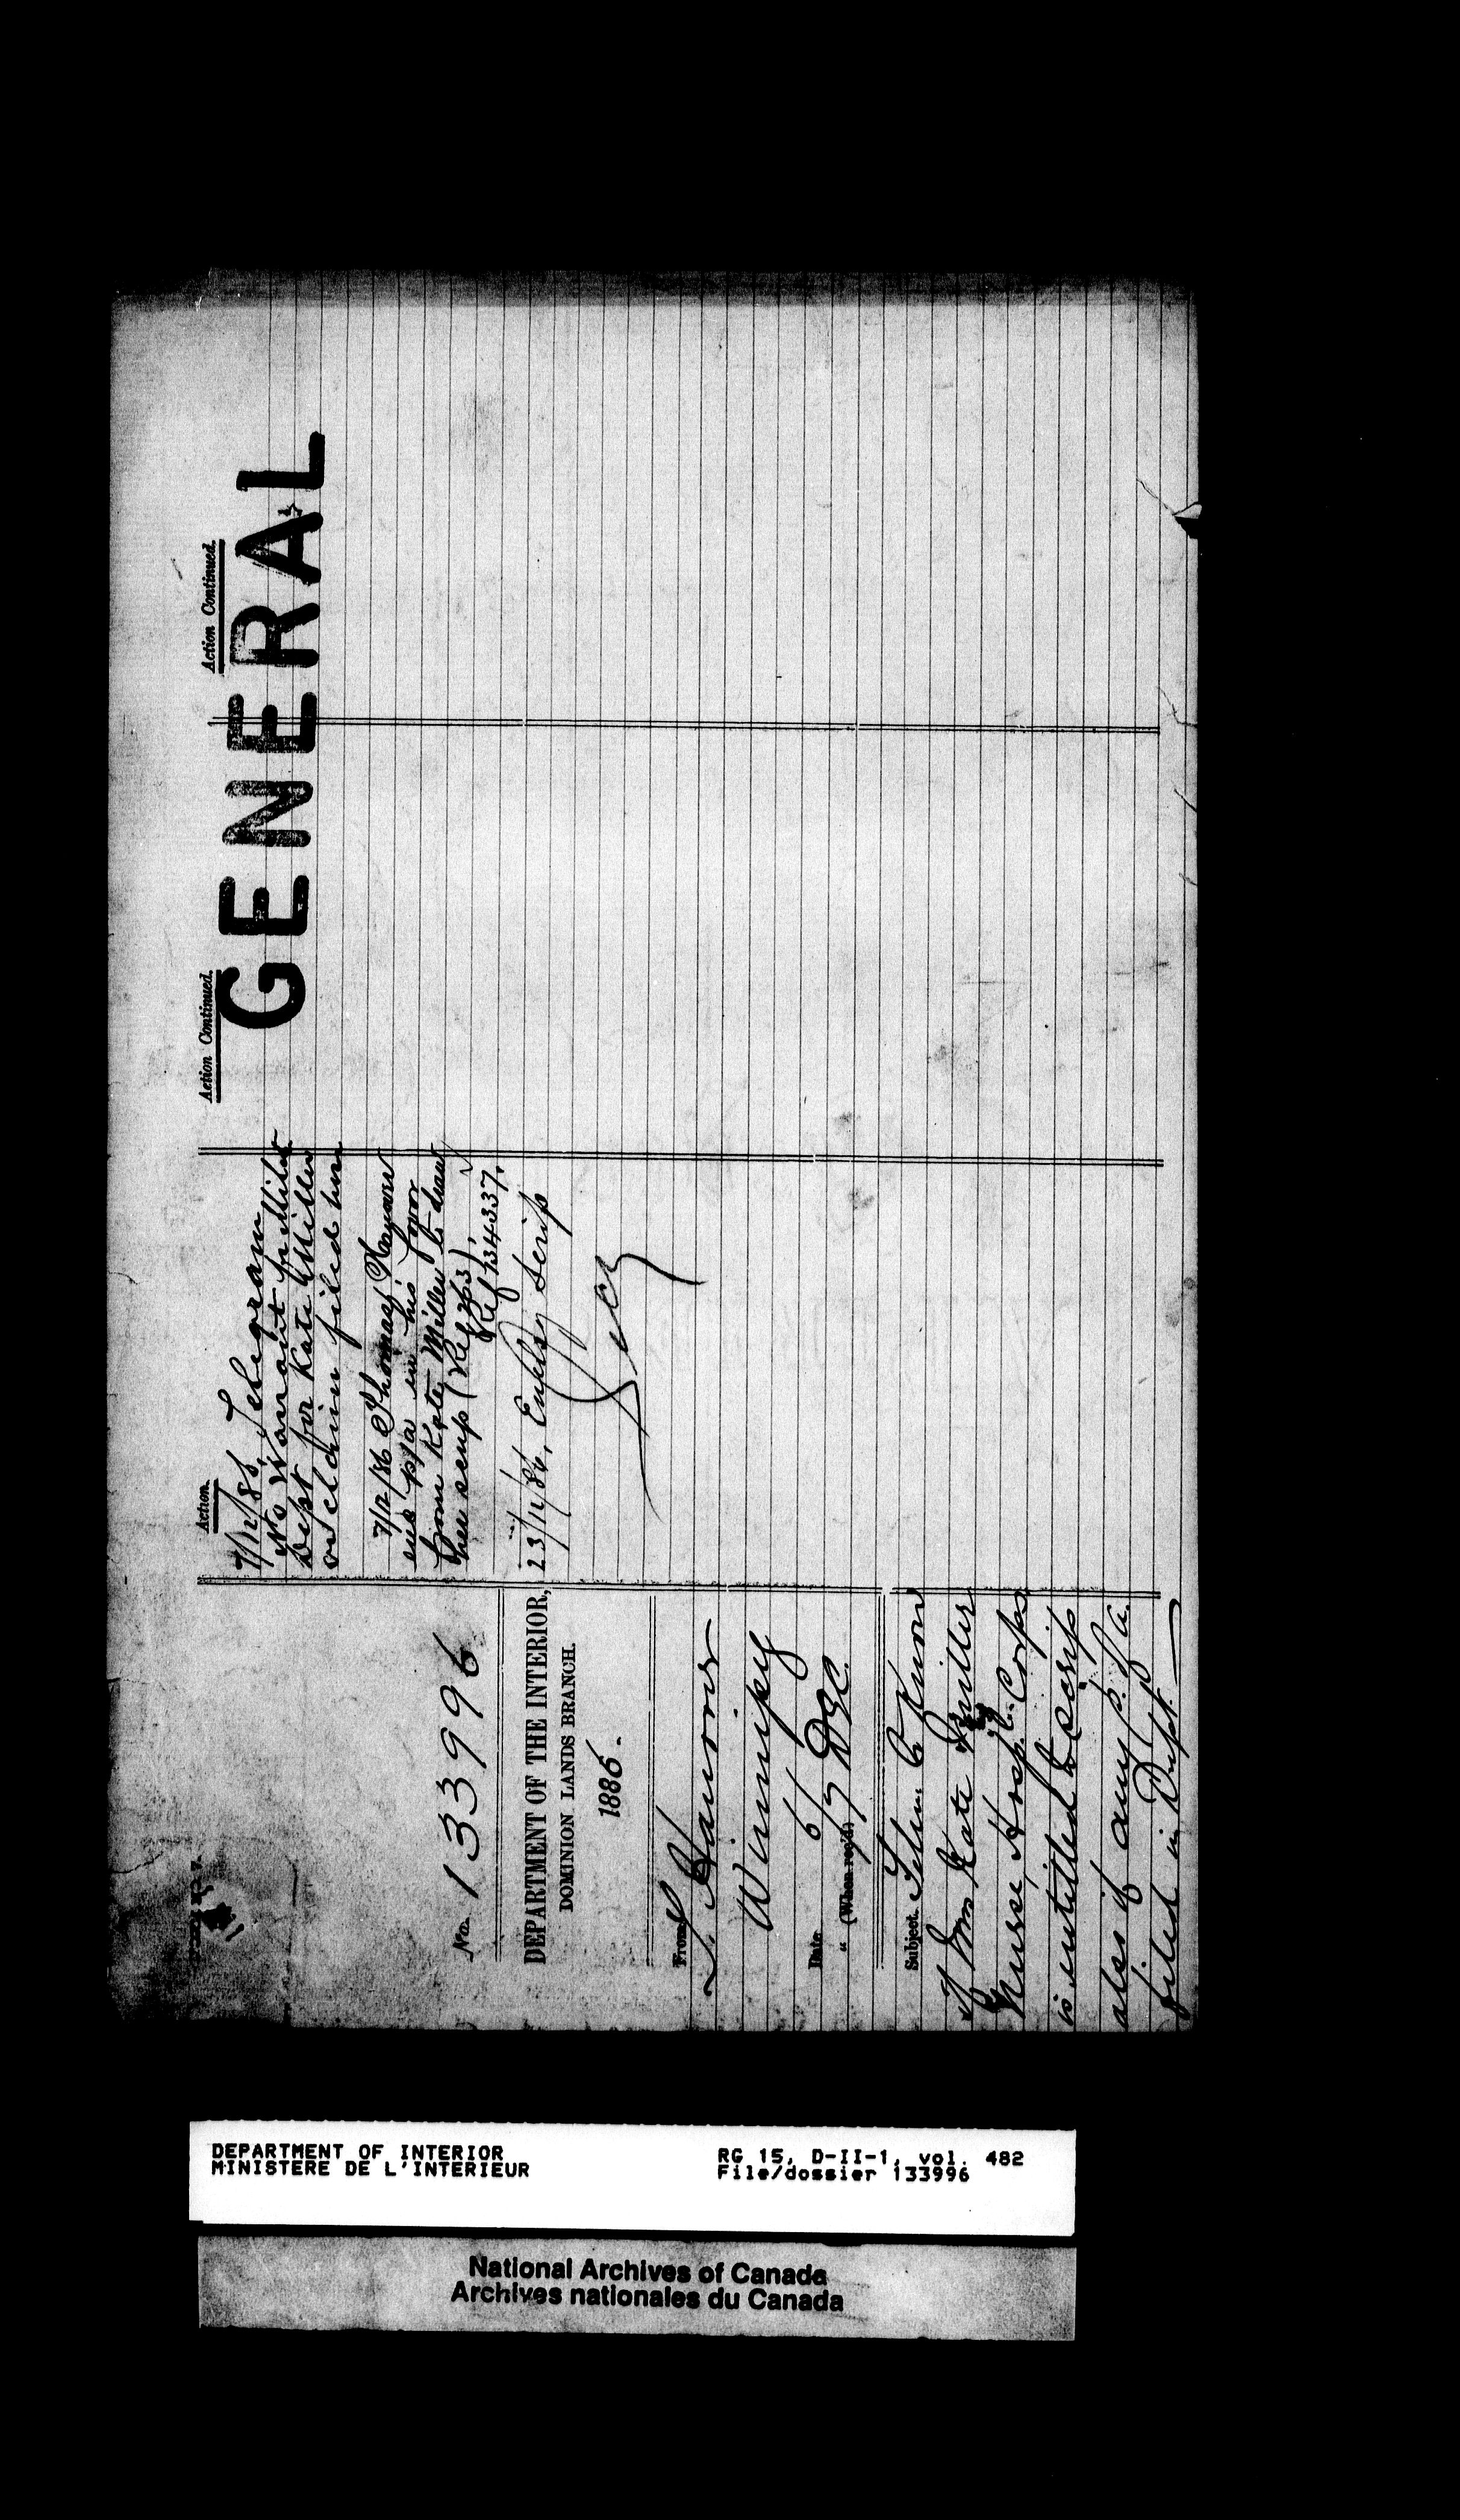 No. 133996
DEPARTMENT OF THE INTERIOR,
DOMINION LANDS BRANCH.
1886.
From
Winnipeg
Date 6/
" (When rec'd) 7 Dec.
Subject. to Know
if Mrs Kate Miller
Nurse, Hosp. Corps
is entitled to scrip
also if any p. of a.
filed in Dept.
Action.
7/12/86, Telegram
No Warrant fr Milit
Dept for Kate Miller
or claim filed here
7/12/86 Thomas
enc p/a in his favor
from Kate Miller to draw
her scrip (Ref 263).
Ref 134337.
23/12/86, scrip
Action Continued.
GENERAL
Action Continued.
DEPARTMENT OF INTERIOR
MINISTERE DE L'INTERIEUR
RG 15, D-II-1, vol. 482
File/dossier 133996
National Archives of Canada
Archives nationales du Canada